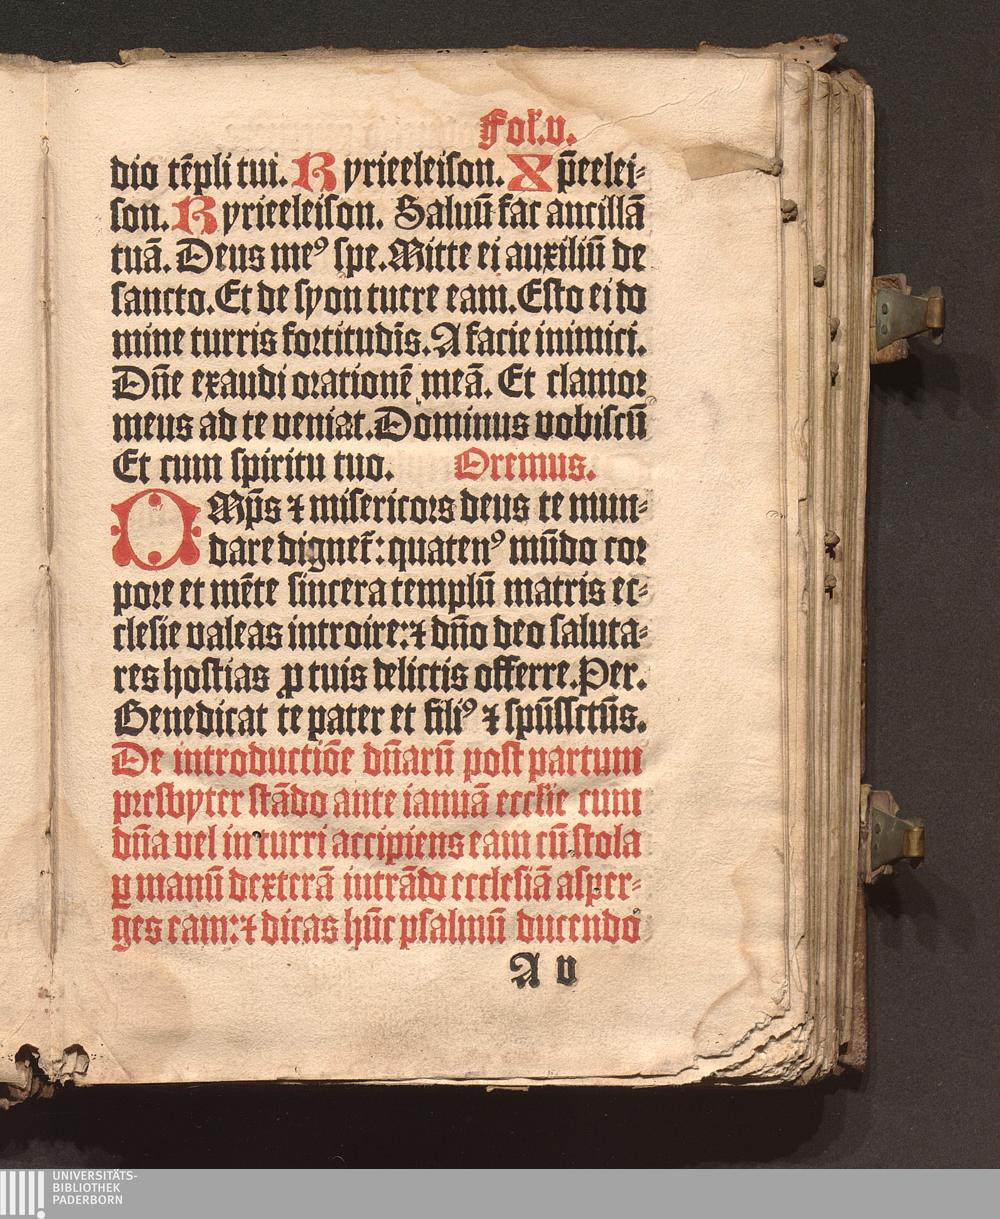 Fol. v.
dio tēpli tui. Kyrieeleison. Xp̄eelei-
son. Kyrieeleison. Saluū fac ancillā
tuā. Deus meꝰ spe. Mitte ei auxiliū de
sancto. Et de syon tuere eam. Esto ei do
mine turris fortitudīs. A facie inimici.
Dn̄e exaudi orationē meā. Et clamor
meus ad te veniat. Dominus vobiscū
Et cum spiritu tuo. Oremus.
OMp̄s ⁊ misericors deus te mun-
dare dignet᷑: quatenꝰ mūdo cor
pore et mēte sincera templū matris ec-
clesie valeas introire: ⁊ dn̄o deo saluta-
res hostias ꝓ tuis delictis offerre. Per.
Benedicat te pater et filiꝰ ⁊ spūssctūs.
De introductiōe dn̄arū post partum
presbyter stādo ante ianuā eccl̄ie cum
dn̄a vel in turri accipiens eam cū stola
ꝑ manū dexterā intrādo ecclesiā asper-
ges eam: ⁊ dicas hūc psalmū ducendo
A v
UNIVERSITÄTS-
BIBLIOTHEK
PADERBORN